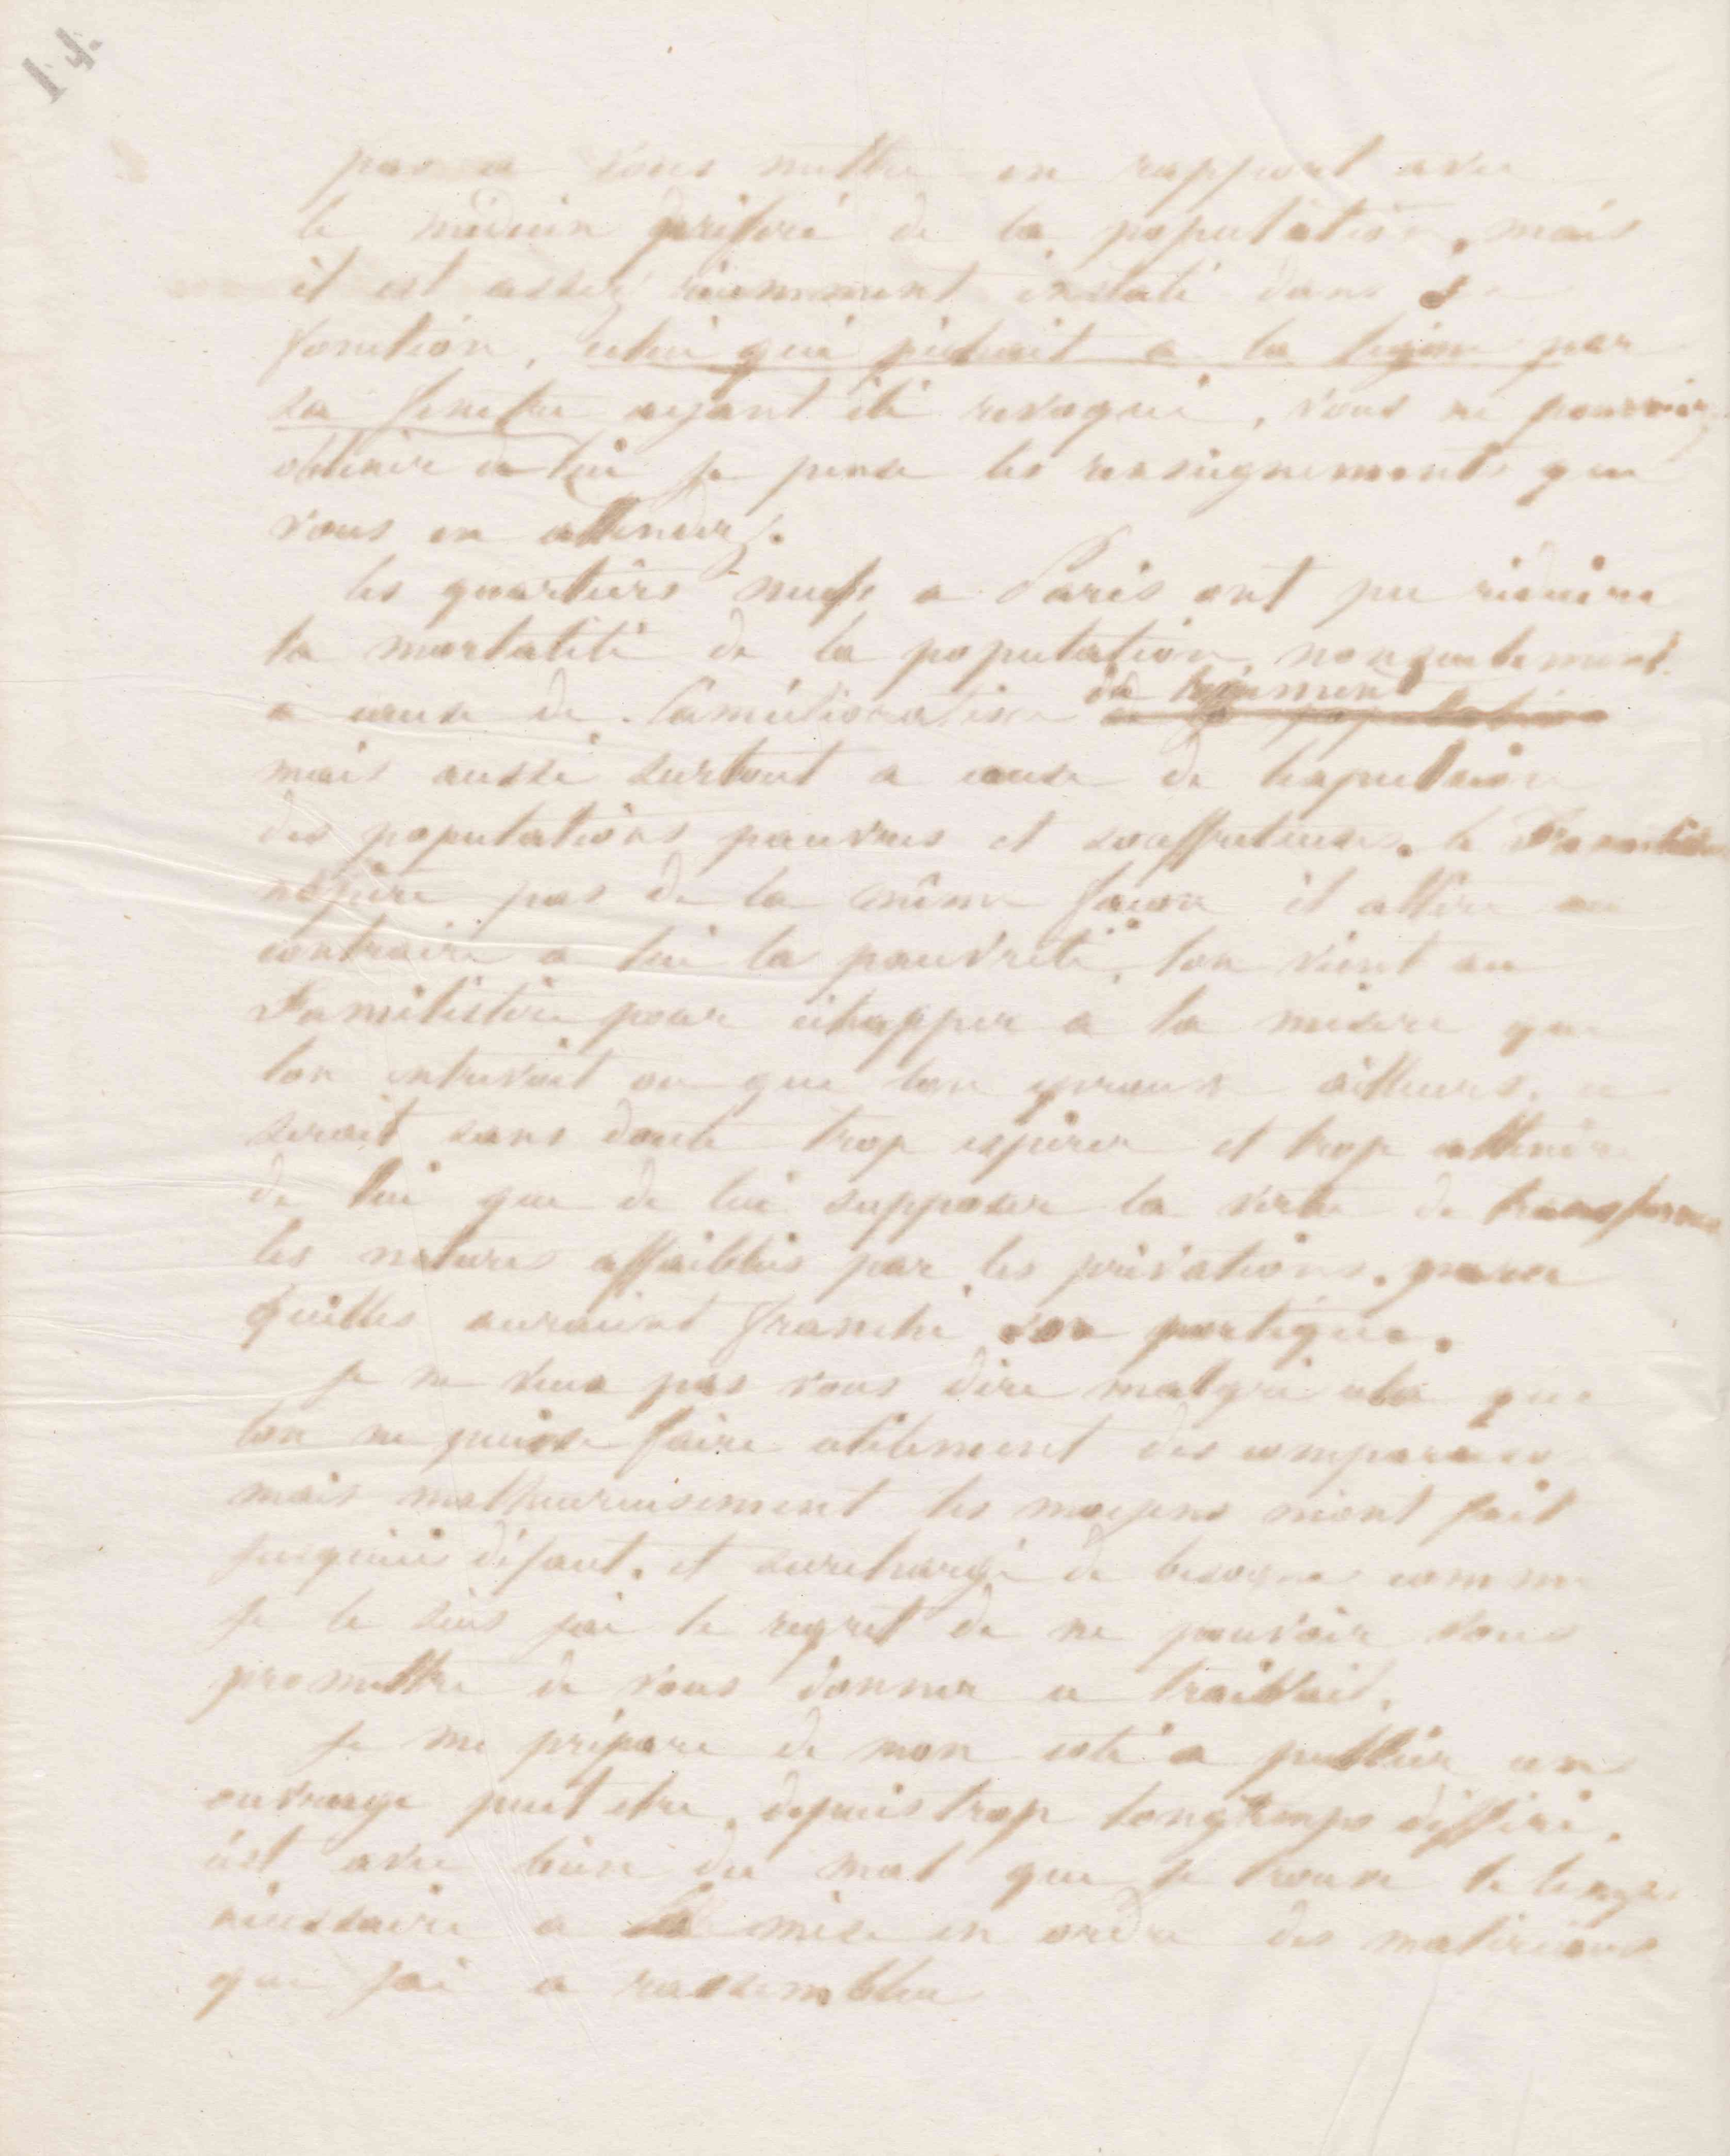 14
pas a vous mettre en rapport avec
le médecin préféré de la population, mais
il est assez récemment installé dans sa
fonction, celui qui puisait a la par
sa fenetre ayant été revoqué, vous ne pourriez
obtenir de lui je pense les renseignements que
vous en attendez.
les quartiers neufs a Paris ont pu réduire
la mortalité de la population, non seulement
a cause de l'amélioration du logement de la population
mais aussi surtout a cause de l'expulsion
des populations pauvres et souffreteuses. le Familistère
n'opère pas de la même façon il attire au
contraire a lui la pauvreté, lon vient au
Familistère pour échapper a la misère que
lon entrevoit ou que lon eprouve ailleurs, ce
serait sans doute trop espérer et trop attendre
de lui que de lui supposer la vertu de transformer
les natures affaiblies par les privations, parce
quelles auraient franchi son portique.
Je ne veux pas vous dire malgré cela que
lon ne puisse faire utilement des comparaisons
mais malheureusement les moyens m'ont fait
jusqu'ici défaut, et surchargé de besogne comme
Je le suis jai le regret de ne pouvoir vous
promettre de vous donner ce travail.
Je me prépare de mon coté a publier un
ouvrage peut etre depuis trop longtemps différé.
c'est avec bien du mal que je trouve le temps
nécessaire a la mise en ordre des matériaux
que jai a rassembler